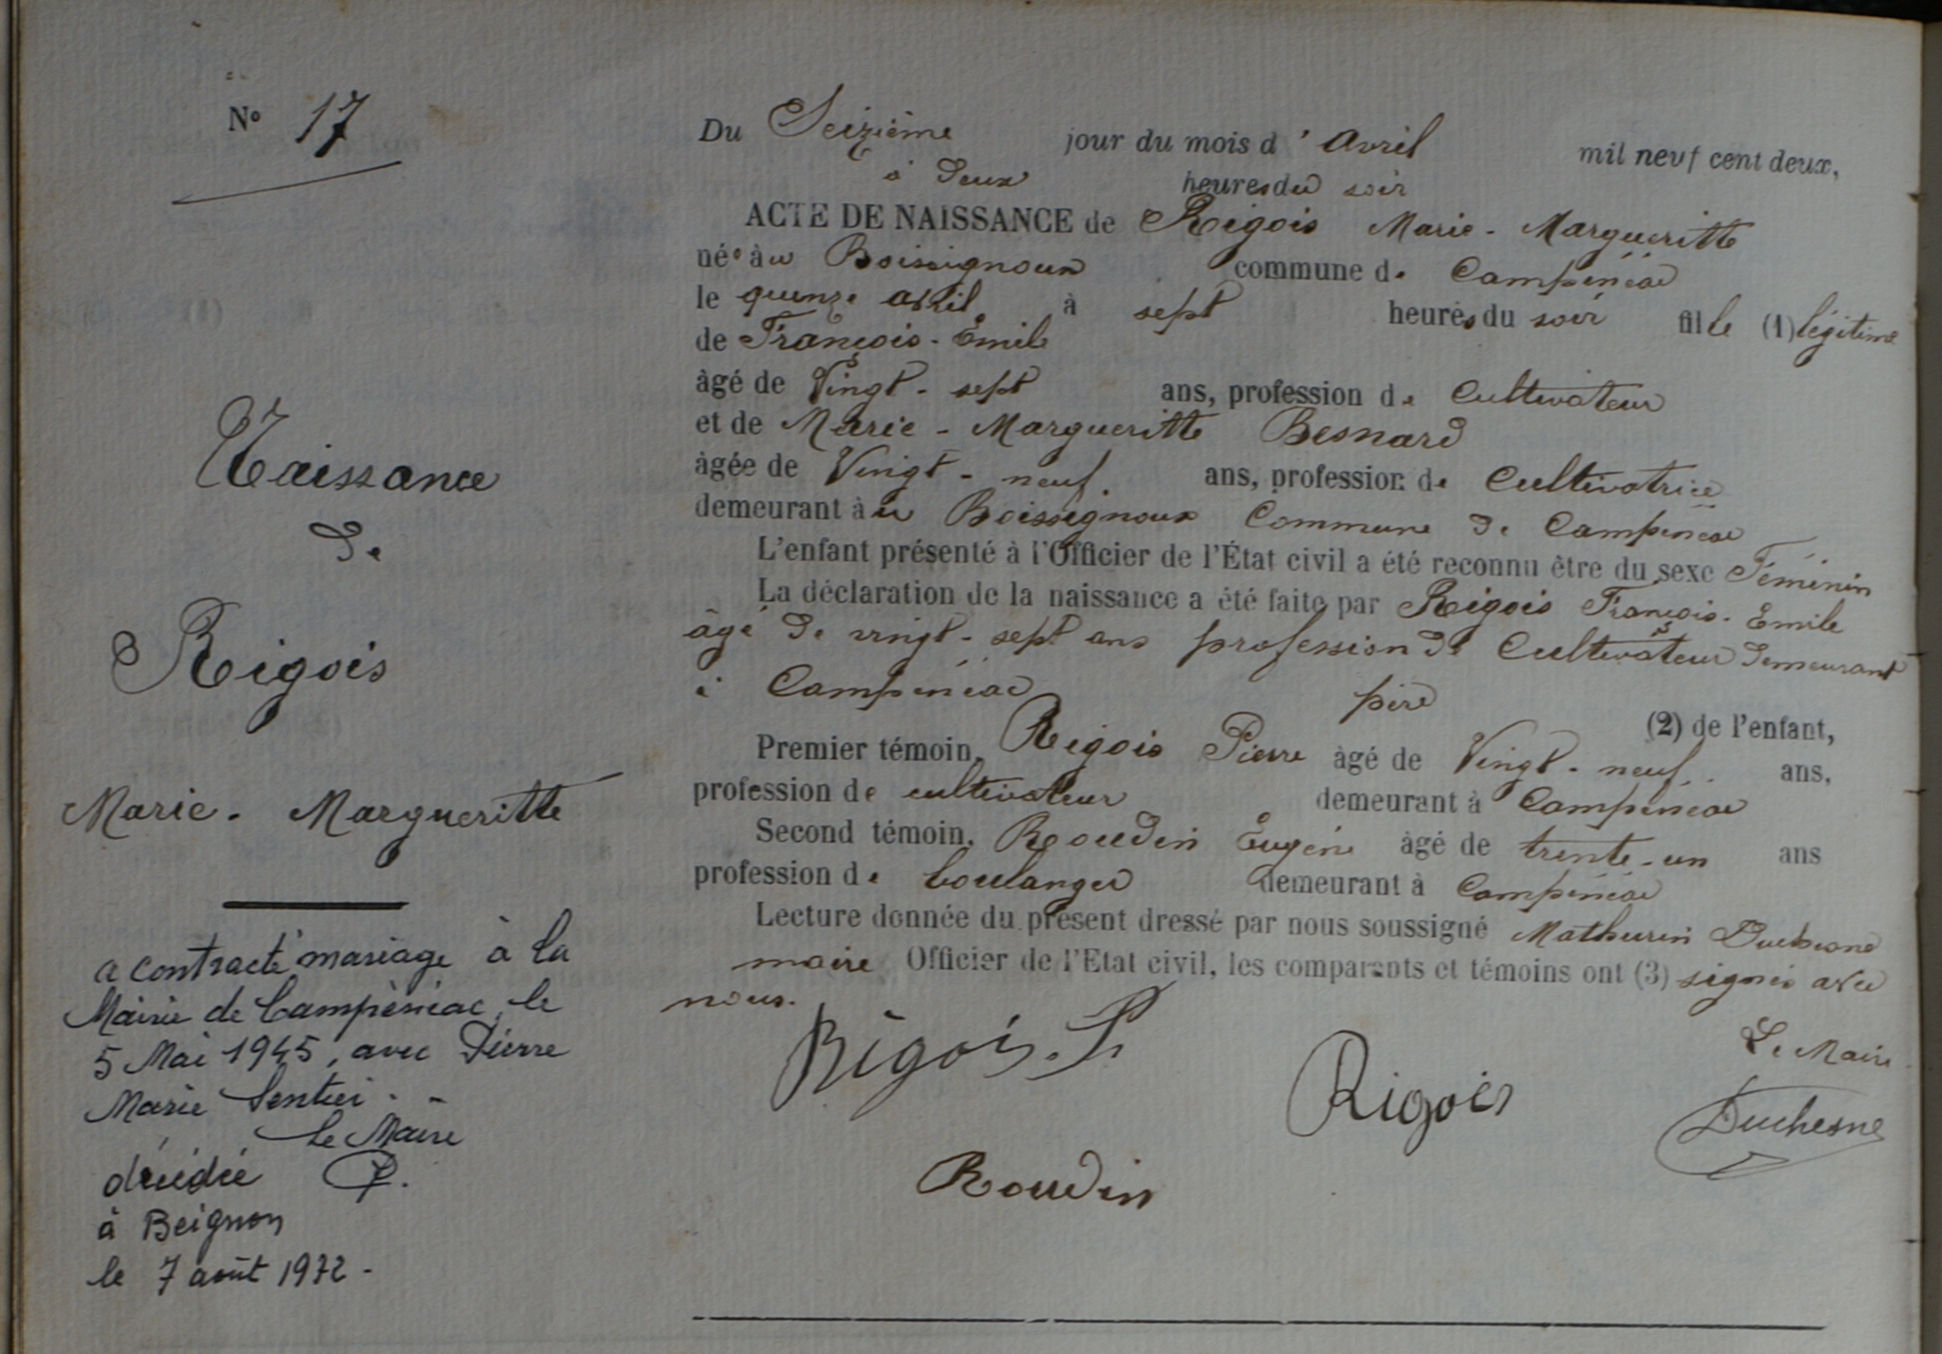 N° 17
Naissance
de
Rigois
Marie - Margueritte
a contracté mariage à la
Mairie de Campénéac, le
5 Mai 1945, avec Pierre
Marie
Le Maire
décédée
à Beignon
le 7 août 1972 -
Du Seizième jour du mois d'avril mil neuf cent deux,
à deux heures du soir
ACTE DE NAISSANCE de Rigois Marie - Margueritte
née au Boissignoux commune de Campénéac
le quinze avril à sept heures du soir fille (1) légitime
de François - Emile
âgé de Vingt - sept ans, profession de Cultivateur
et de Marie - Margueritte Besnard
âgée de Vingt - neuf ans, profession de Cultivatrice
demeurant au Boissignoux Commune de Campénéac
L'enfant présenté à l'Officier de l'État civil a été reconnu être du sexe Féminin
La déclaration de la naissance a été faite par Rigois François - Emile
âgé de vingt - sept ans profession de Cultivateur demeurant
à Campénéac père (2) de l'enfant,
Premier témoin, Rigois Pierre âgé de Vingt - neuf ans,
profession de cultivateur demeurant à Campénéac
Second témoin, Roudin Eugène âgé de trente - un ans
profession de boulanger demeurant à Campénéac
Lecture donnée du présent dressé par nous soussigné Mathurin Duchesne
maire Officier de l'Etat civil, les comparants et témoins ont (3) signés avec
nous.
Rigois. P
Le Maire
Rigois
Duchesne
Roudin